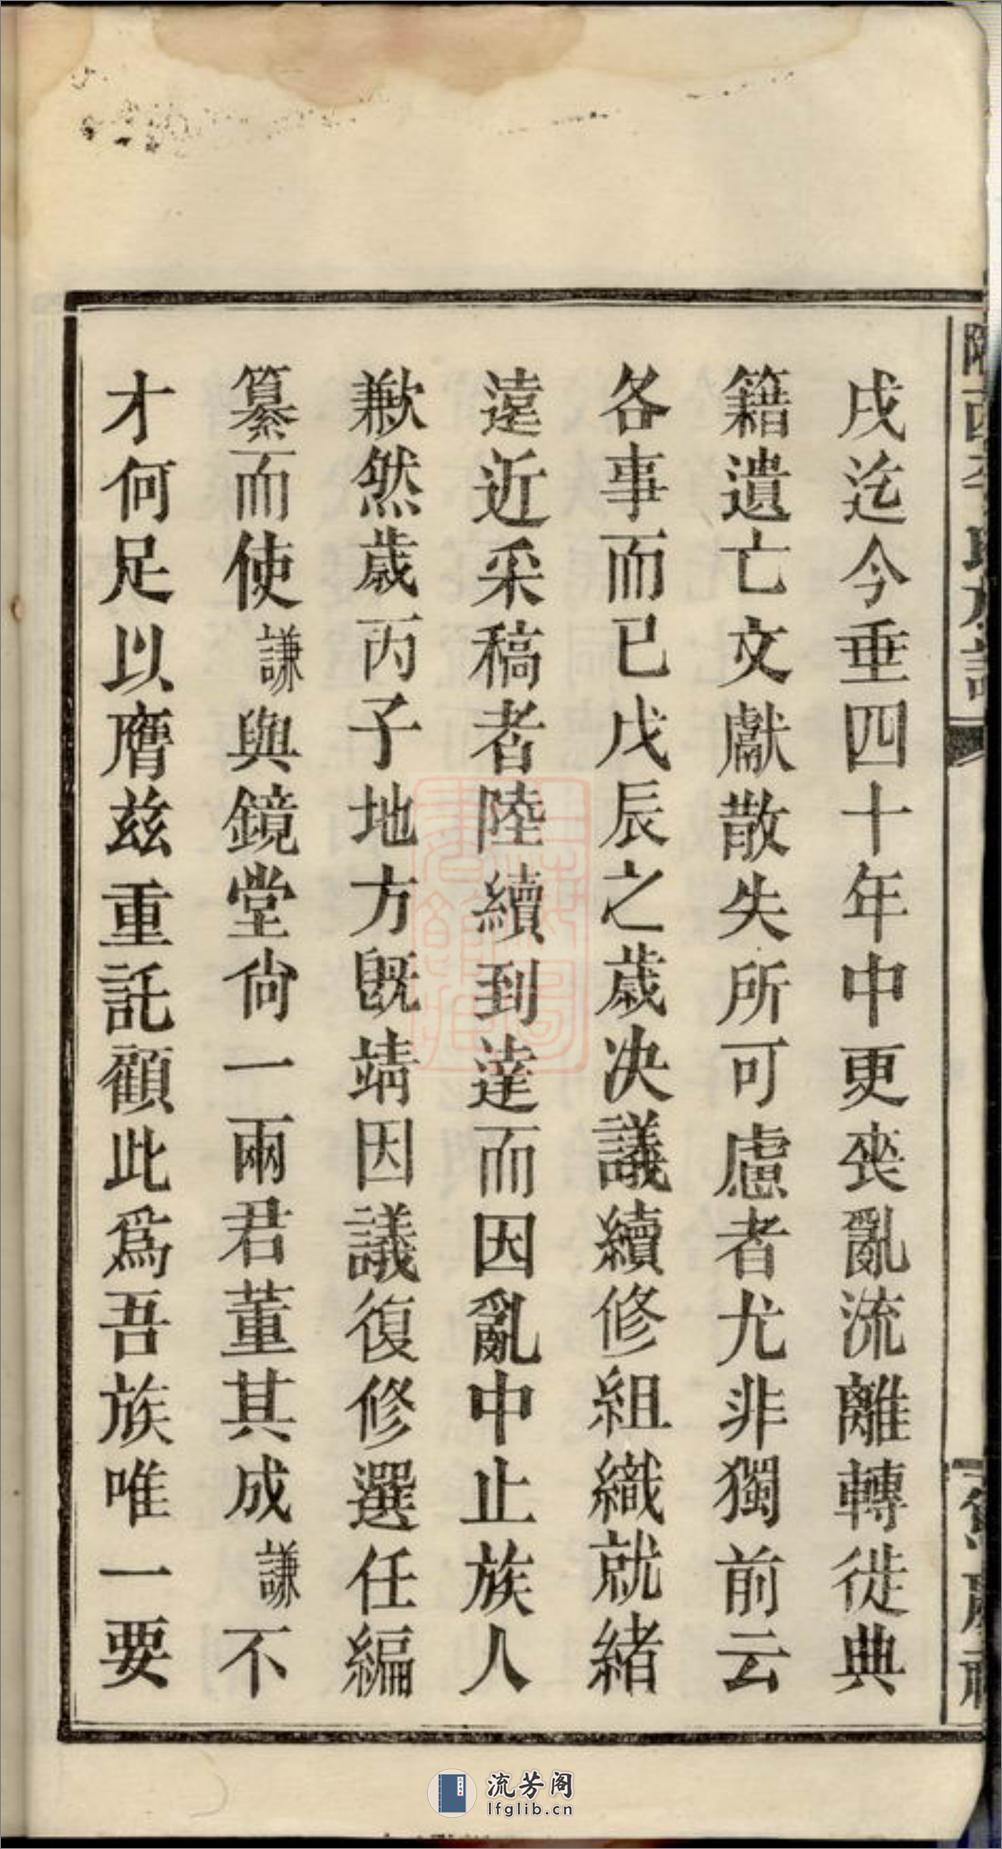 戌迄今垂四十年中更喪亂流離轉徙典
籍遺亡文獻散失所可慮者尤非獨前云
各事而已戊辰之歲决議續修組織就緒
遠近采稿者陸續到達而因亂中止族人
歉然歲丙子地方旣靖因議復修選任編
纂而使謙與鏡堂尙一兩君董其成謙不
才何足以膺兹重託顧此爲吾族唯一要
流芳阁
lfglib.cn